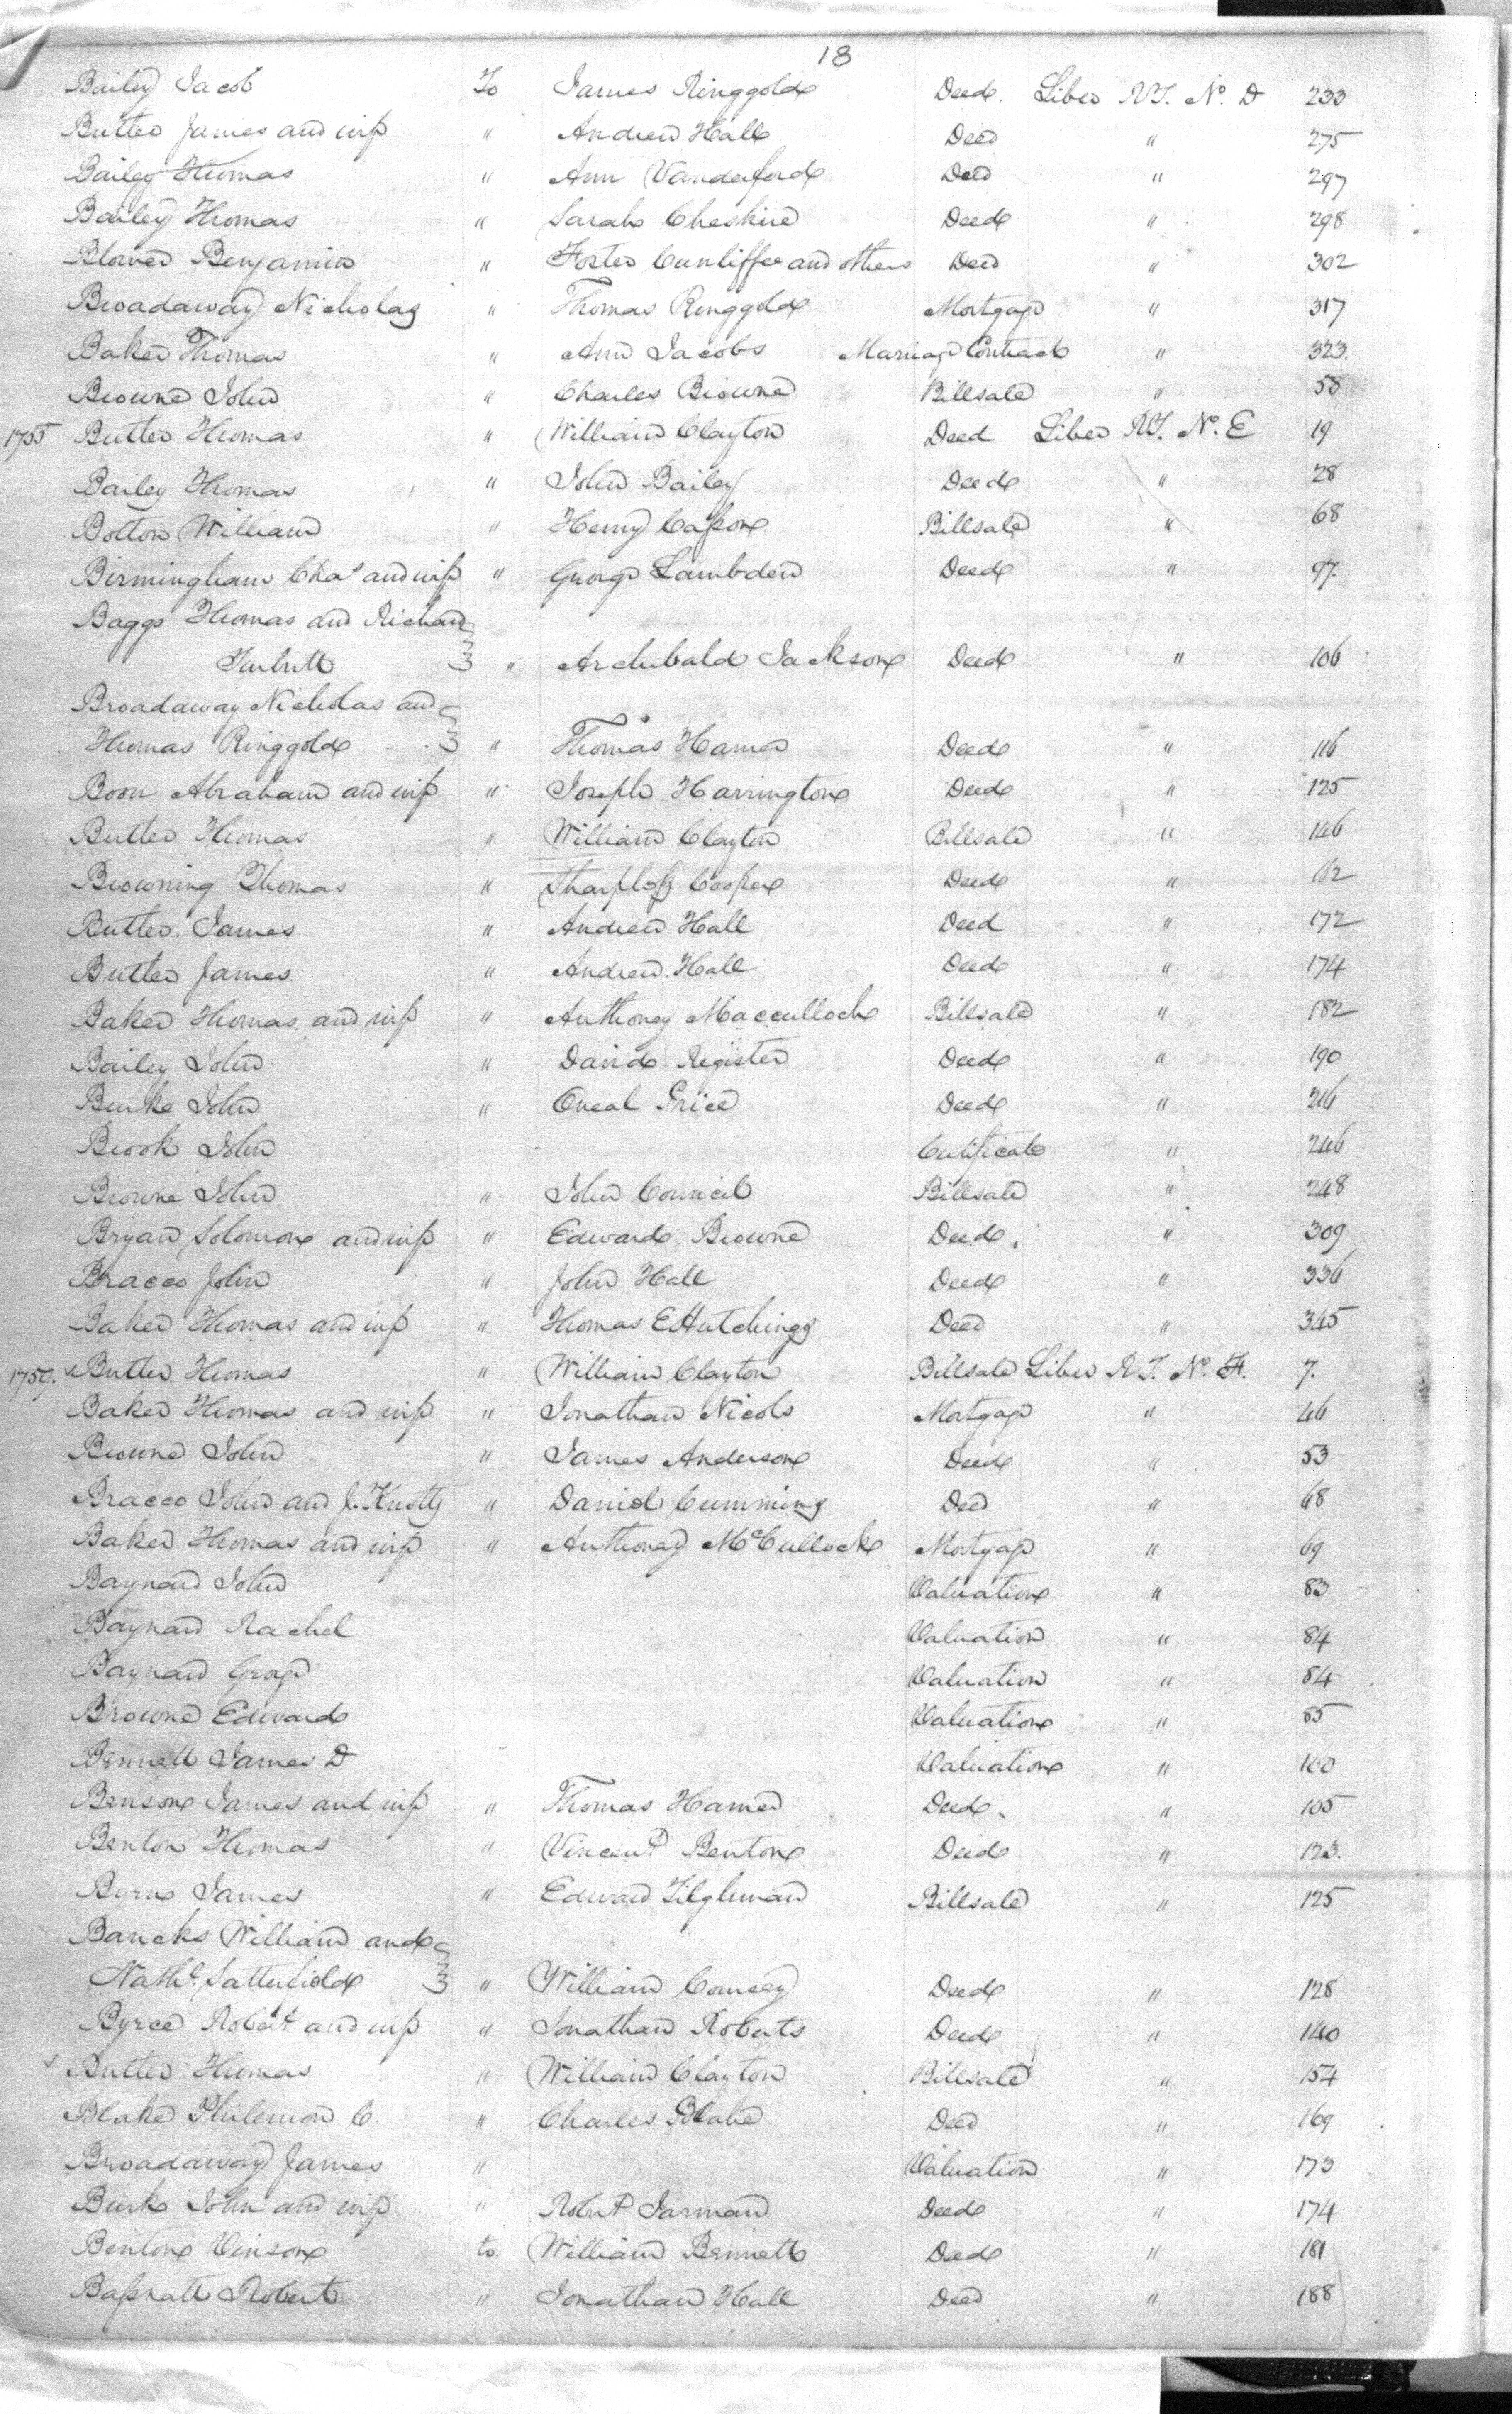 18
Bailey Jacob To James Ringgold Deed. Liber RT. No. D 233
Butler James and wife " Andrew Hall Deed " 275
Bailey Thomas " Ann Vanderford Deed " 297
Bailey Thomas " Sarah Cheshire Deed " 298
Benjamin " Foster Cunliffee and others Deed " 302
Broadaway Nicholas " Thomas Ringgold Mortgage " 317
Baker Thomas " Ann Jacobs Marriage Contract " 323.
Browne John " Charles Browne Billsale " 58
1755 Butler Thomas " William Clayton Deed Liber RT. No. E 19
Bailey Thomas " John Bailey Deed " 28
Botton William " Henry Casson Billsale " 68
Birmingham Chas and wife " George Lambden Deed " 97.
Baggs Thomas and Richard
Turbutt " Archibald Jackson Deed " 106
Broadaway Nicholas and
Thomas Ringgold " Thomas Hamer Deed " 116
Boon Abraham and wife " Joseph Harrington Deed " 125
Butler Thomas " William Clayton Billsale " 146
Browning Thomas " Cooper Deed "
Butler James " Andrew Hall Deed " 172
Butler James " Andrew Hall Deed " 174
Baker Thomas and wife " Anthoney Maccullock Billsale " 182
Bailey John " David Register Deed " 190
Burke John " Oneal Price Deed " 216
Brook John Certificate " 246
Browne John " John Council Billsale " 248
Bryan Solomon and wife " Edward Browne Deed. " 309
Bracco John " John Hall Deed " 336
Baker Thomas and wife " Thomas E Hutchings Deed " 345
1759. Butler Thomas " William Clayton Billsale Liber RT. No. F. 7.
Baker Thomas and wife " Jonathan Nicols Mortgage " 46
Browne John " James Anderson Deed " 53
Bracco John and J. " Daniel Cumming Deed " 68
Baker Thomas and wife " Anthoney McCullock Mortgage " 69
Baynard John Valuation " 83
Baynard Rachel Valuation " 84
Baynard Valuation " 84
Browne Edward Valuation " 85
Bennett James D Valuation " 100
Benson James and wife " Thomas Hamer Deed. " 105
Benton Thomas " Vincent Benton Deed " 123.
Byrne James " Edward Tilghman Billsale " 125
Bancks William and
Nathl. Satterfield " William Comsey Deed " 128
Byrce Robert and wife " Jonathan Roberts Deed " 140
Butler Thomas " William Clayton Billsale " 154
Blake Philemon C. " Charles Blake Deed " 169
Broadaway James " Valuation " 173
Burke John and wife " Robert Jarman Deed " 174
Benton Vinson to. William Bennett Deed " 181
Robert " Jonathan Hall Deed " 188